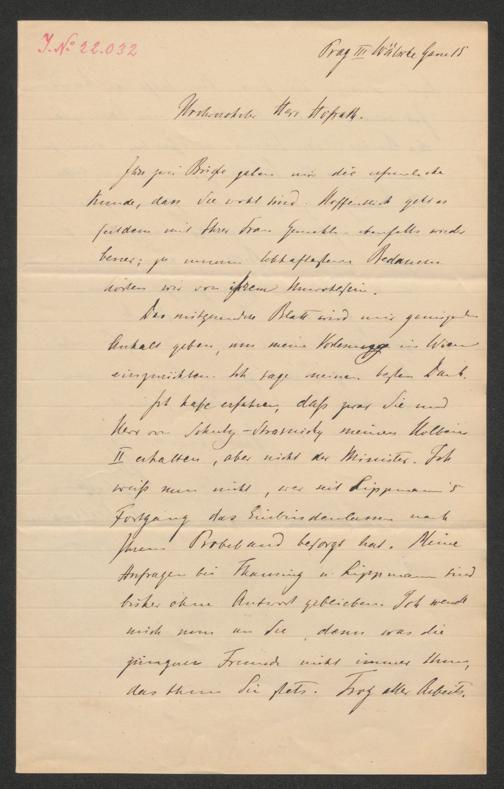 J. No 22.032
Prag III Wälsche Gasse 15
Hochverehrter Herr Hofrath.
Ihre zwei Briefe gaben mir die erfreuliche
Kunde, dass Sie wohl sind. Hoffentlich geht es
seitdem mit Ihrer Frau Gemahlin ebenfalls wieder
besser; zu unserem lebhaftesten Bedauern
hörten wir von ihrem Unwohlsein.
Das mitgesendete Blatt wird mir genügenden
Anhalt geben, um meine Vorlesung in Wien
einzurichten. Ich sage meinen besten Dank.
Ich habe erfahren, daß zwar Sie und
Herr von Schultz-Strasnitzky meinen Holbein
II erhalten, aber nicht der Minister. Ich
weiß nun nicht, wer seit Lippmann's
Fortgang das Einbindenlassen nach
Ihrem Probeband besorgt hat. Meine
Anfragen bei Thausing u. Lippmann sind
bisher ohne Antwort geblieben. Ich wende
mich nun an Sie, denn was die
jüngeren Freunde nicht immer thun,
das thun Sie stets. Trotz aller Arbeits-